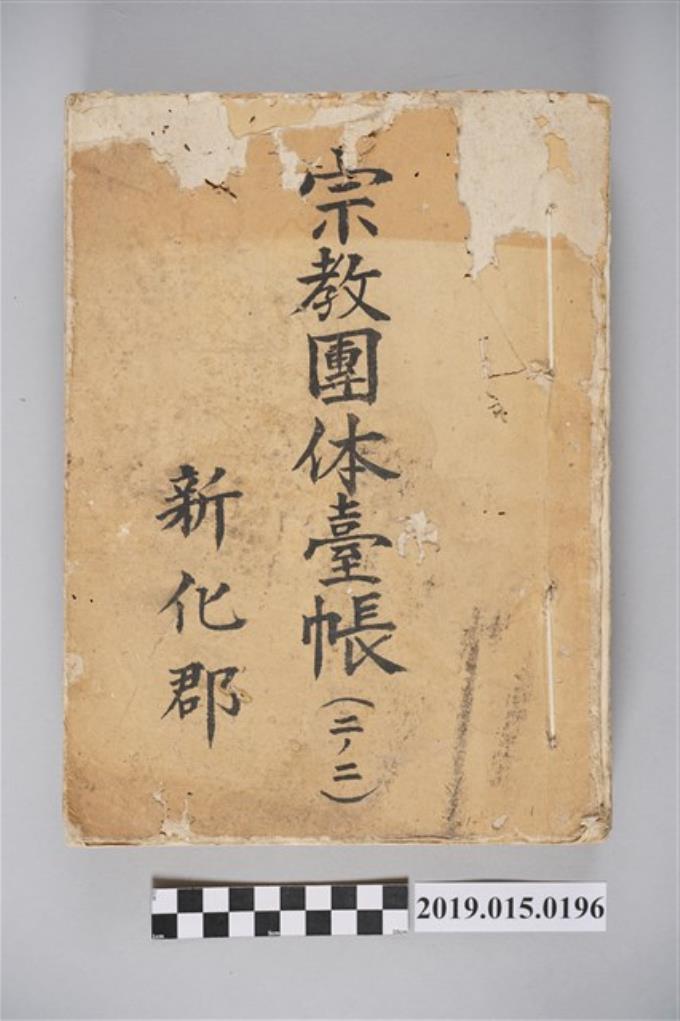 宗教團体臺帳(二ノ二)
新化郡
2019.015.0196